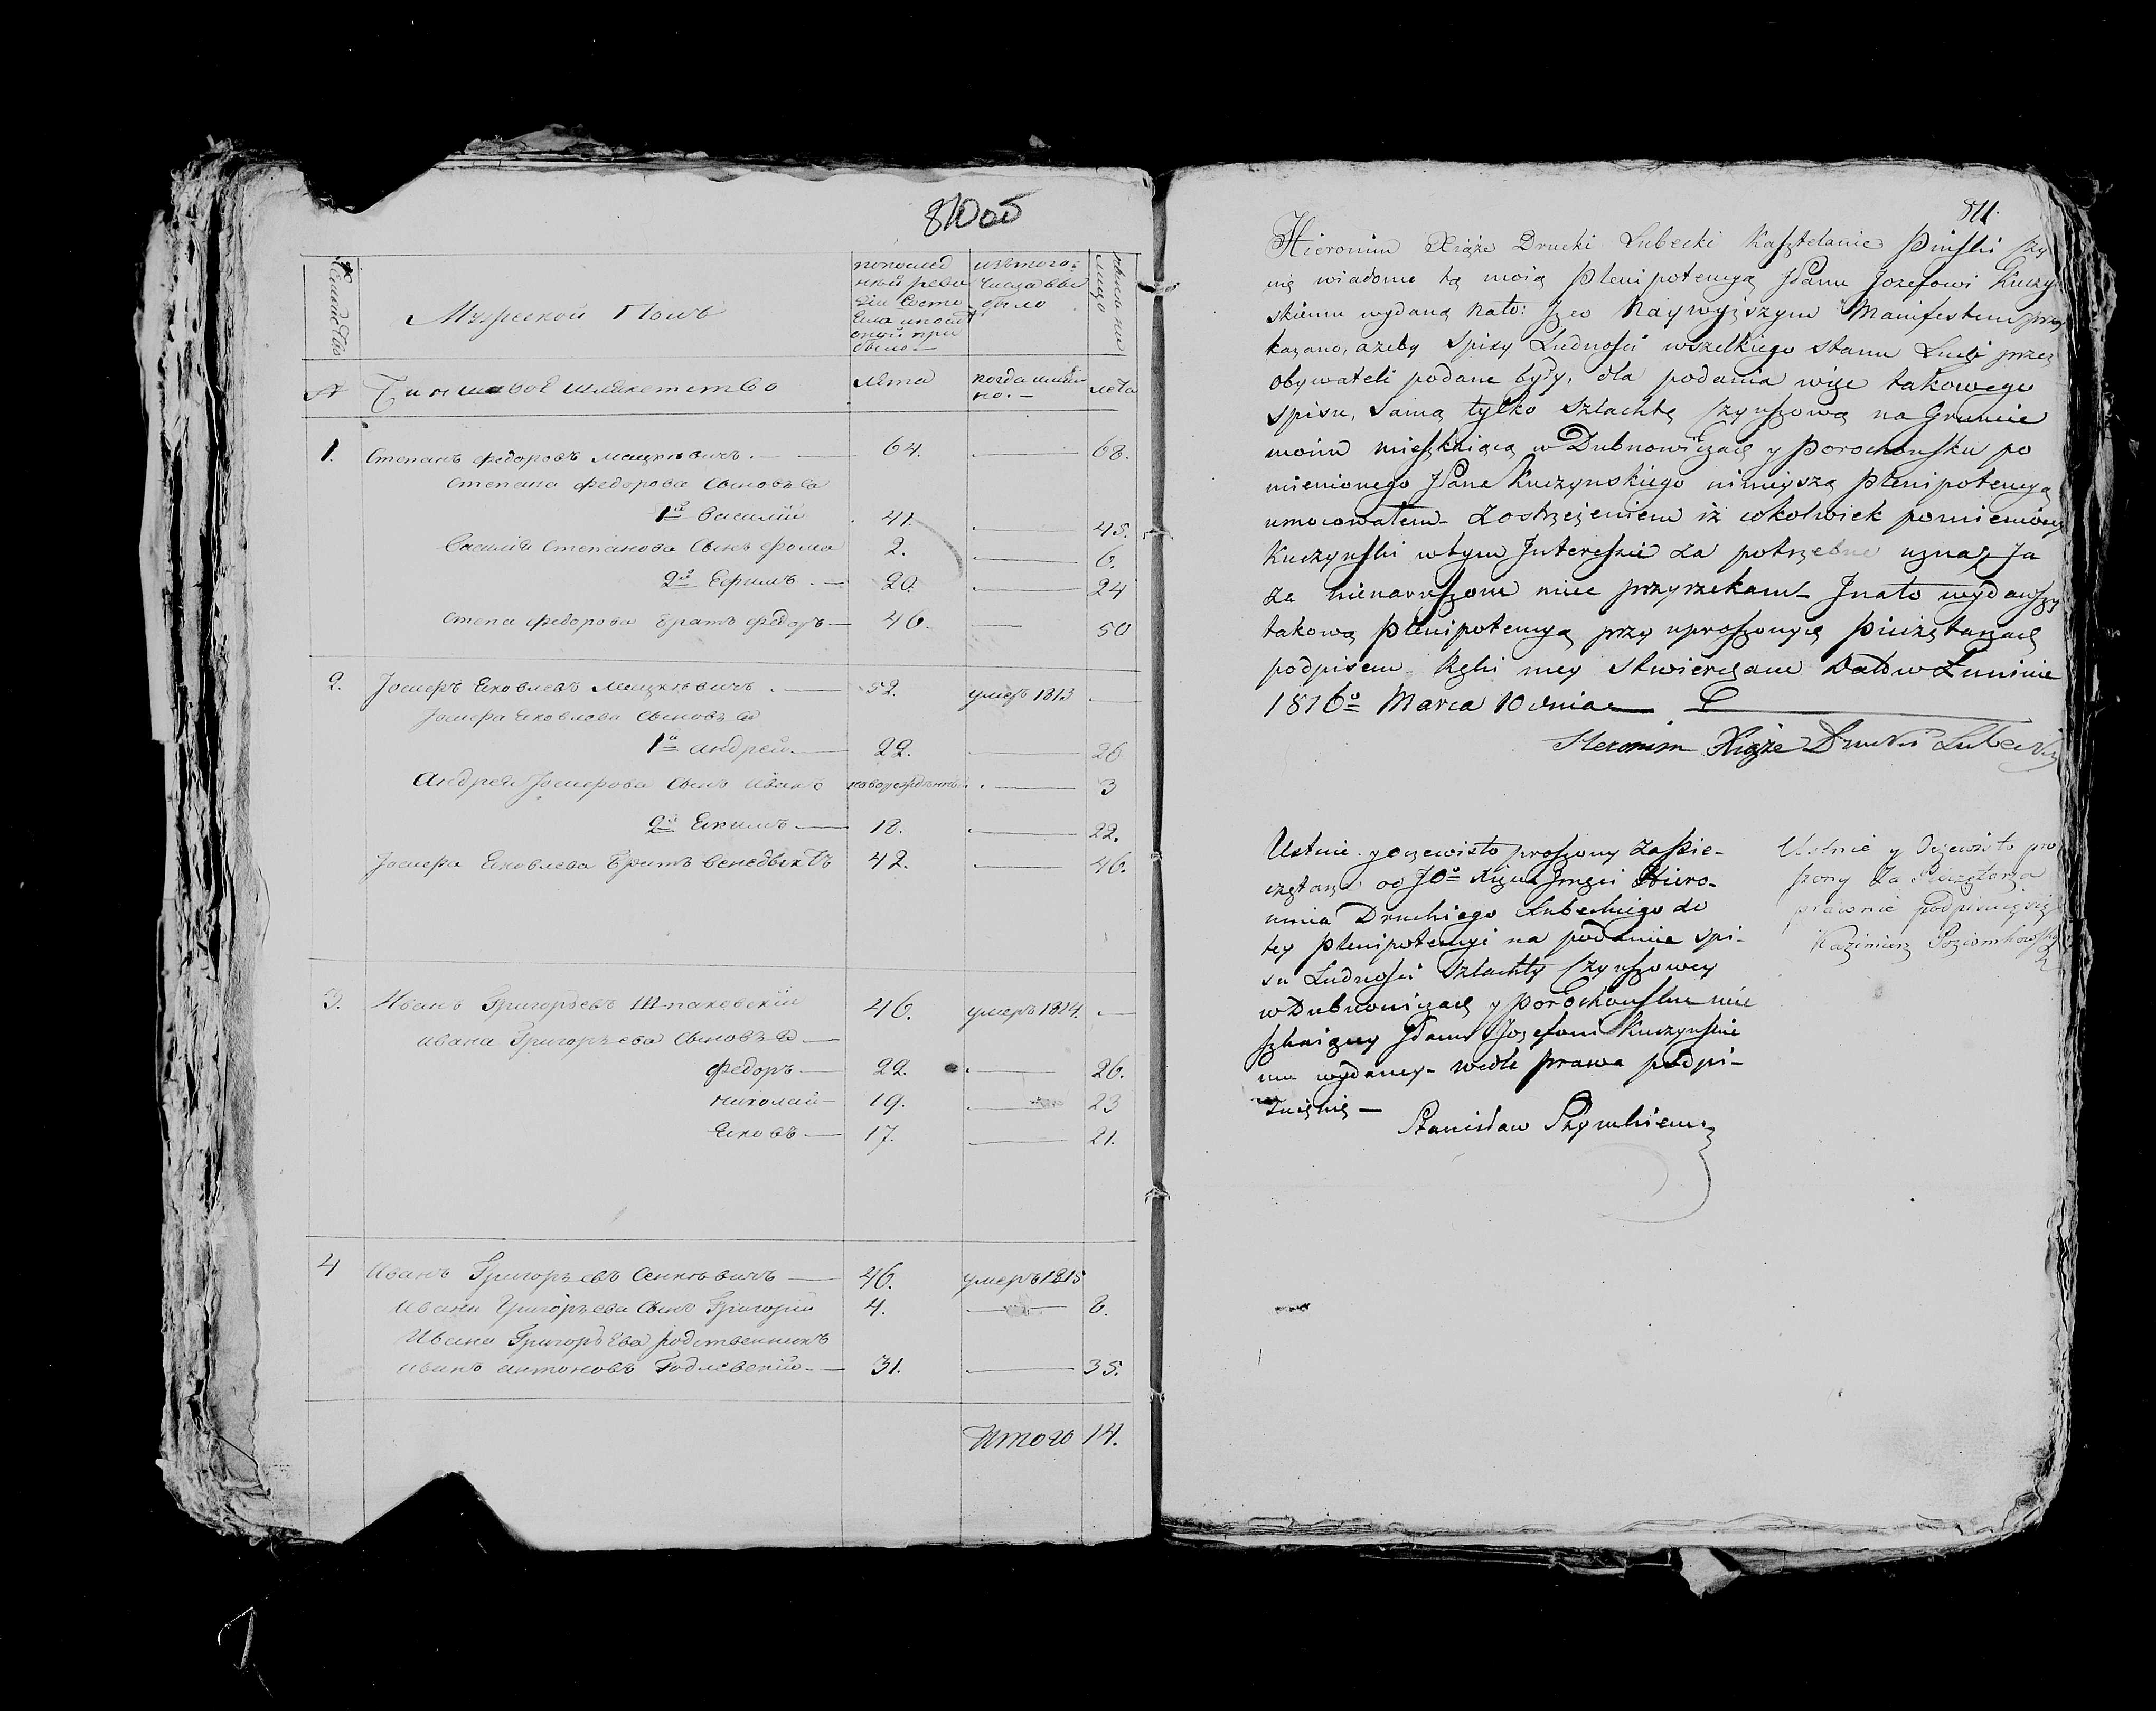 810 об
Мужеской Полъ
по послед
ней реви
зіи состо
из того
числа вы
было
№
Чиншовое шляхетство
лета
когда имян
но.
лета
1. Степанъ Федоровъ Мацкевичъ. 64. 68.
Степана Федорова сыновья
1й Василій 41. 45.
Василія Степанова сынъ Фома 2. 6.
2й Ефимъ. 20. 24
Степа Федорова братъ Федоръ 46. 50
2. Іосифъ Яковлевъ Мацкевичъ. 52. умеръ 1813
Іосифа Яковлева сыновья
1й Андрей 22. 26
Андрея Іосифова сынъ Иванъ новорожденный 3
2й Якимъ 18. 22.
Іосифа Яковлева братъ Бенедыктъ 42. 46.
3. Иванъ Григорьевъ Шпаковскій 46. умеръ 1814.
Ивана Григорьева сыновья
Федоръ 22. 26.
Николай 19. 23
Яковъ 17. 21.
4 Иванъ Григорьевъ Сенкевичъ 46. умеръ 1815
Ивана Григорьева сынъ Григорій 4. 8.
Ивана Григорьева родственникъ
Иванъ Антоновъ Годлевскій 31. 35.
Итого 14.
811.
Hieronim Xiąże Drucki Lubecki Kasztelanic Piński czy
nię wiadomo tą moią Plenipotencyą JPanu Jozefowi Kuczyń
skiemu wydaną na to: Iż co Naywyższym Manifestem przy
kazano, ażeby spisy Ludności wszelkiego stanu Ludzi przez
obywateli podane były, dla podania więc takowego
spisu, samą tylko szlachtę czynszową na Gruncie
moim mieszkaiącą w Dubnowiczach y Porochońsku po
mienionego JPana Kuczynskiego ninieyszą Plenipotencyą
umocowałem zostrzeżeniem iż cokolwiek pomieniony
Kuczyński w tym Interesie za potrzebne uzna, Ja
za nienaruszone mieć przyrzekam. I na to wydawszy
takową Plenipotencyą przy uproszonych Pieczętarzach
podpisem Ręki mey stwierdzam Dat w Łuninie
1816o Marca 10 dnia
Hieronim Xiąże Drucki Lubecki
Ustnie y oczewisto proszony za Pie-
czętarza od JO Xięcia Jmści Hiero-
nima Druckiego Lubeckiego do
tey Plenipotencyi na podanie spi-
su Ludności Szlachty Czynszowey
w Dubnowiczach y Porochońsku mie
szkaiącey JPanu Jozefowi Kuczynskie
mu wydaney wedle prawa podpi-
suię się
Stanisław Szymkiewicz
Ustnie y Oczewisto pro
szony Za Pieczętarza
prawnie podpisuię się
Kazimierz Poziomkowski